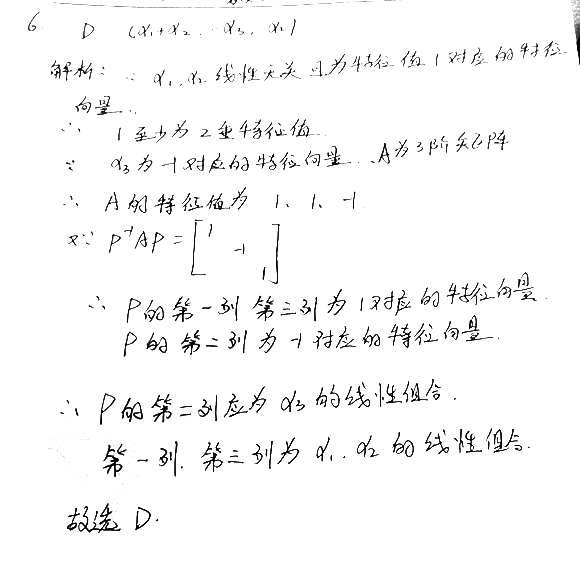 6. D (α₁+α₂, -α₃, α₂)
解析: ∵ α₁, α₂ 线性无关 且为特征值 1 对应的特征
向量.
∴ 1 至少为 2 重特征值.
∵ α₃ 为 -1 对应的特征向量. A为3阶矩阵
∴ A 的特征值为 1、1、-1
又∵ P⁻¹AP = [1 -1 1]
∴ P的第一列 第三列为 1 对应的特征向量.
P的第二列为 -1 对应的特征向量.
∴ P的第二列应为 α₃ 的线性组合.
第一列. 第三列为 α₁. α₂ 的线性组合.
故选 D.